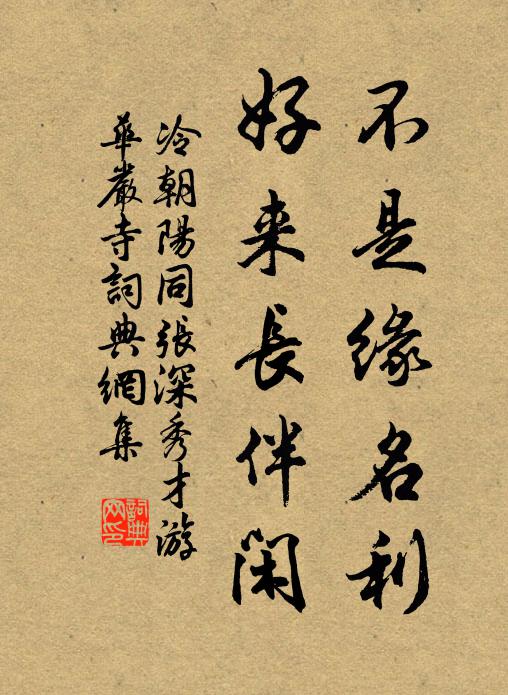 不是缘名利
好来長伴閑
冷朝陽同張深秀才游
華嚴寺詞典網集
詞典网印